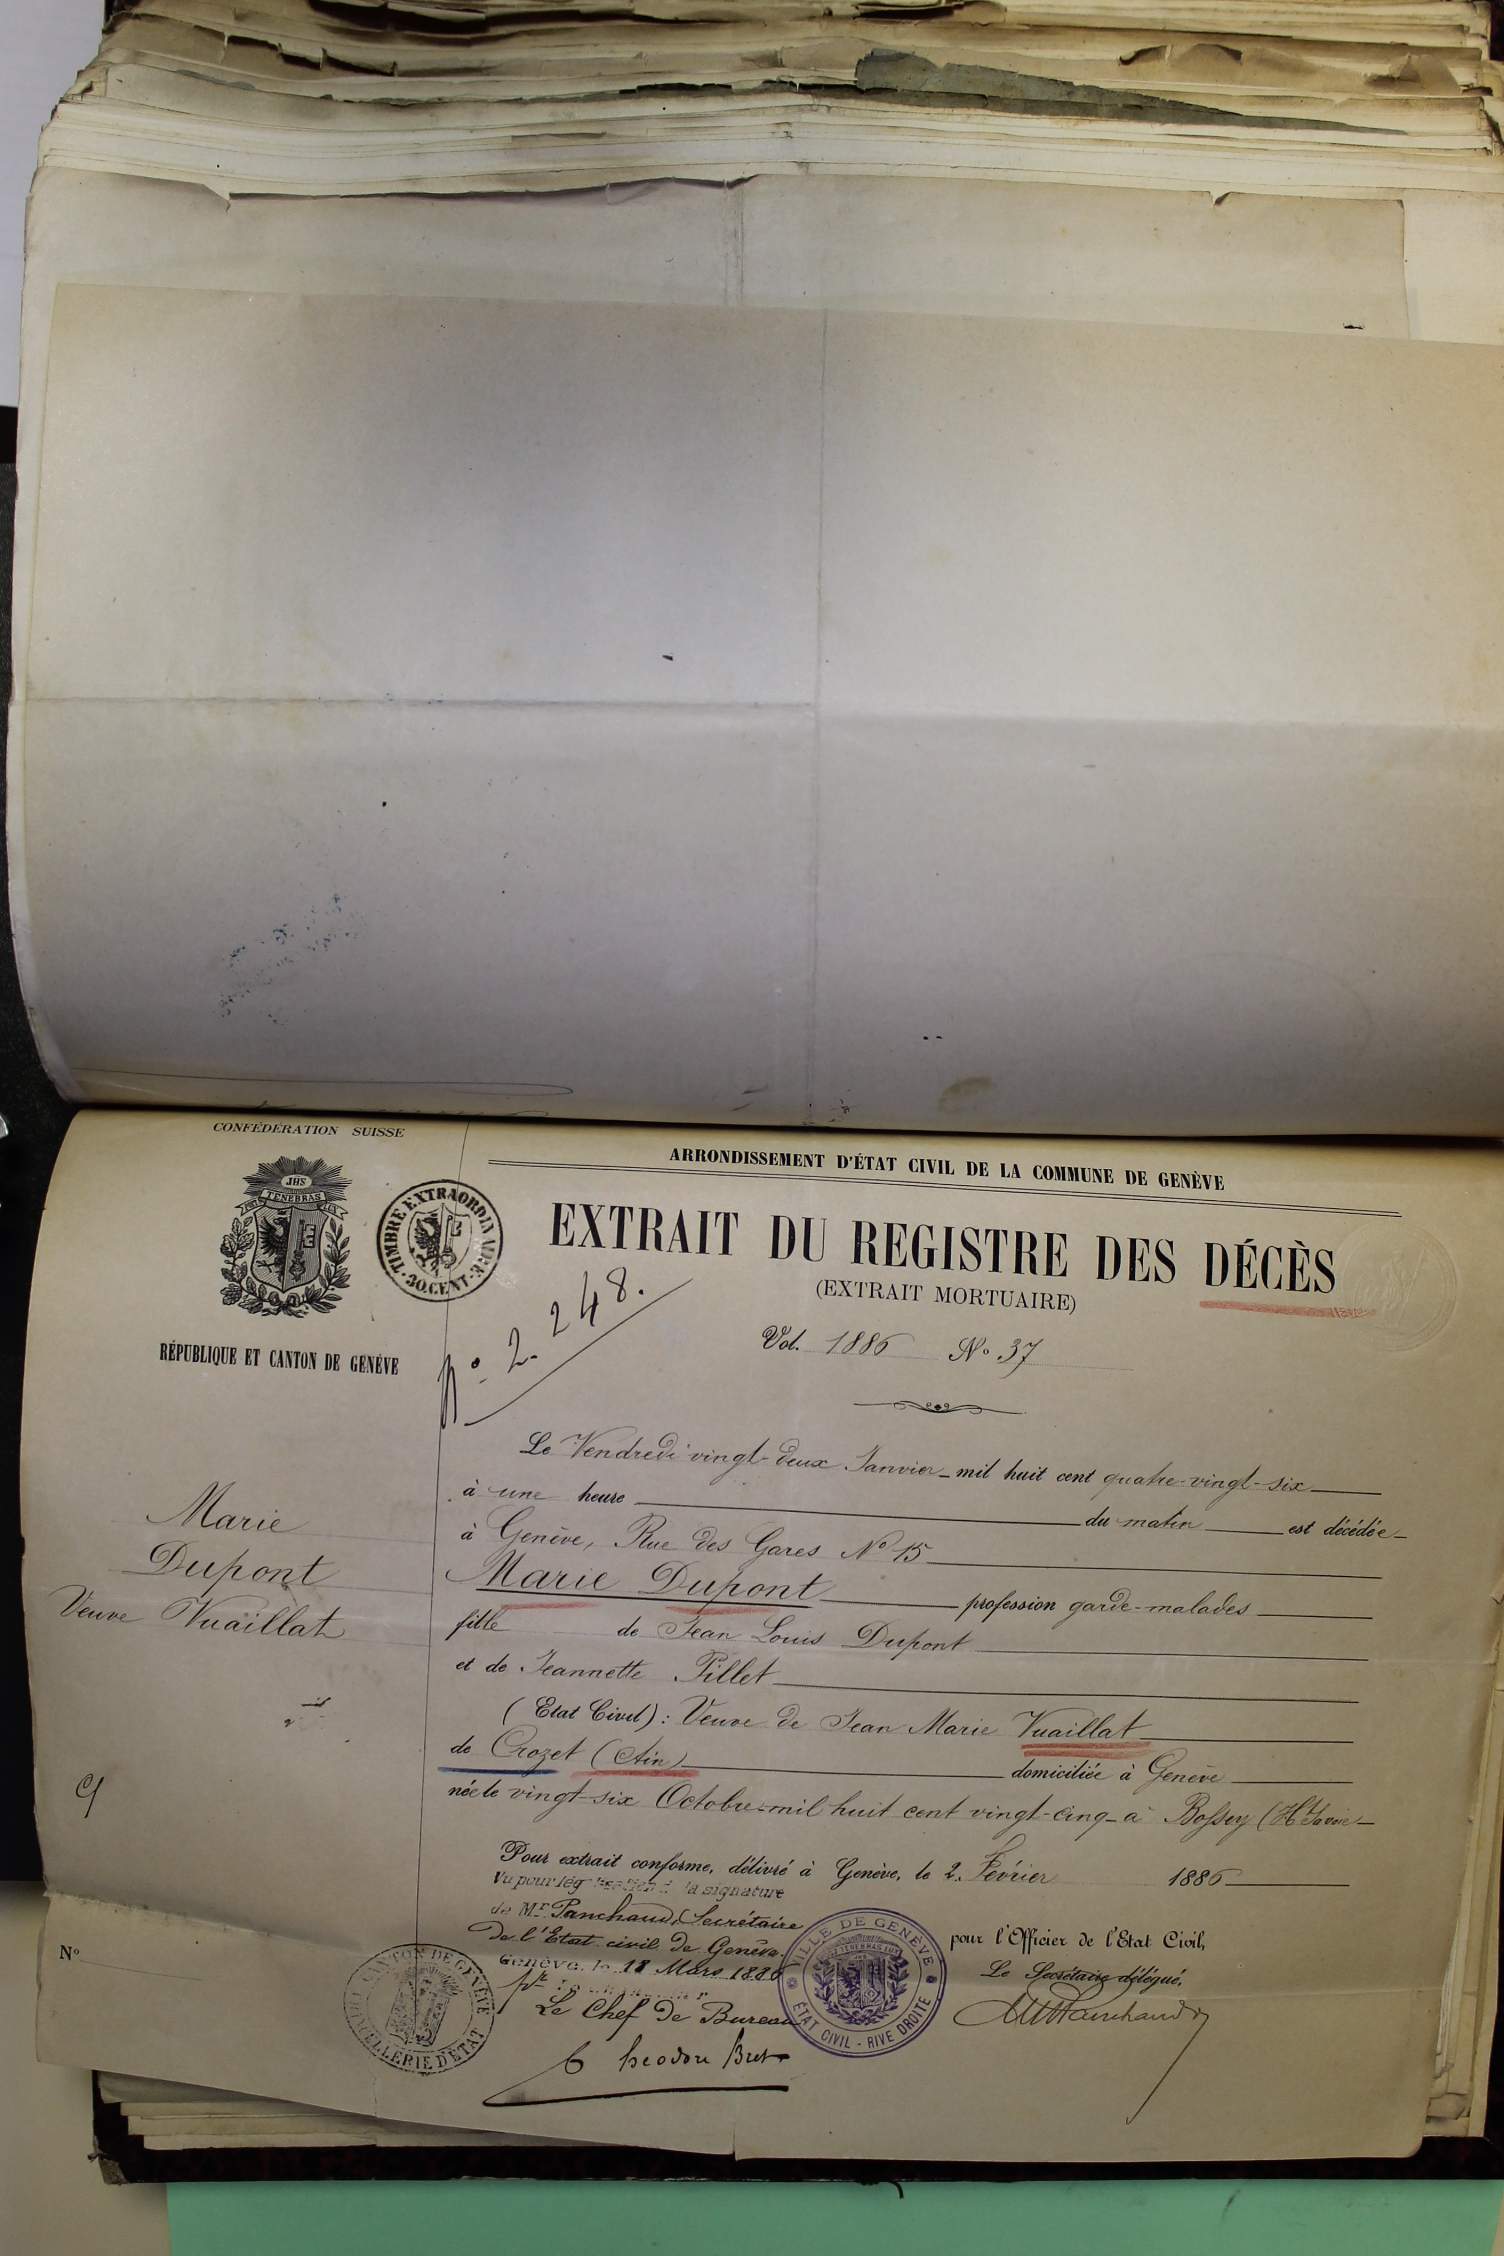 CONFÉDÉRATION SUISSE
JHS
POST TENEBRAS LUX
RÉPUBLIQUE ET CANTON DE GENÈVE
TIMBRE EXTRAORDINAIRE
30. CENT.
ARRONDISSEMENT D'ÉTAT CIVIL DE LA COMMUNE DE GENÈVE
EXTRAIT DU REGISTRE DES DÉCÈS
(EXTRAIT MORTUAIRE)
no. 2. 248.
Vol. 1886 No 37
Marie
Dupont
Veuve Vuaillat
Le Vendredi vingt-deux Janvier mil huit cent quatre-vingt-six
à une heure du matin est décédée
à Genève, Rue des Gares No 15
Marie Dupont profession garde-malades
fille de Jean Louis Dupont
et de Jeannette Pillet
(Etat Civil): Veuve de Jean Marie Vuaillat
de Crozet (Ain) domiciliée à Genève
née le vingt-six Octobre mil huit cent vingt-cinq à Bossey (Hte Savoie
Pour extrait conforme, délivré à Genève, le 2. Février 1886
Vu pour la signature
de Mr. Panchaud, Secrétaire
De l'Etat civil de Genève.
Genève, le 18 Mars 1886
pr
Le Chef de Bureau
Theodore Bret
pour l'Officier de l'Etat Civil,
Le Secrétaire délégué,
Panchaud
No
CANTON DE GENÈVE
CHANCELLERIE D'ÉTAT
VILLE DE GENÈVE
POST TENEBRAS LUX
ÉTAT CIVIL - RIVE DROITE